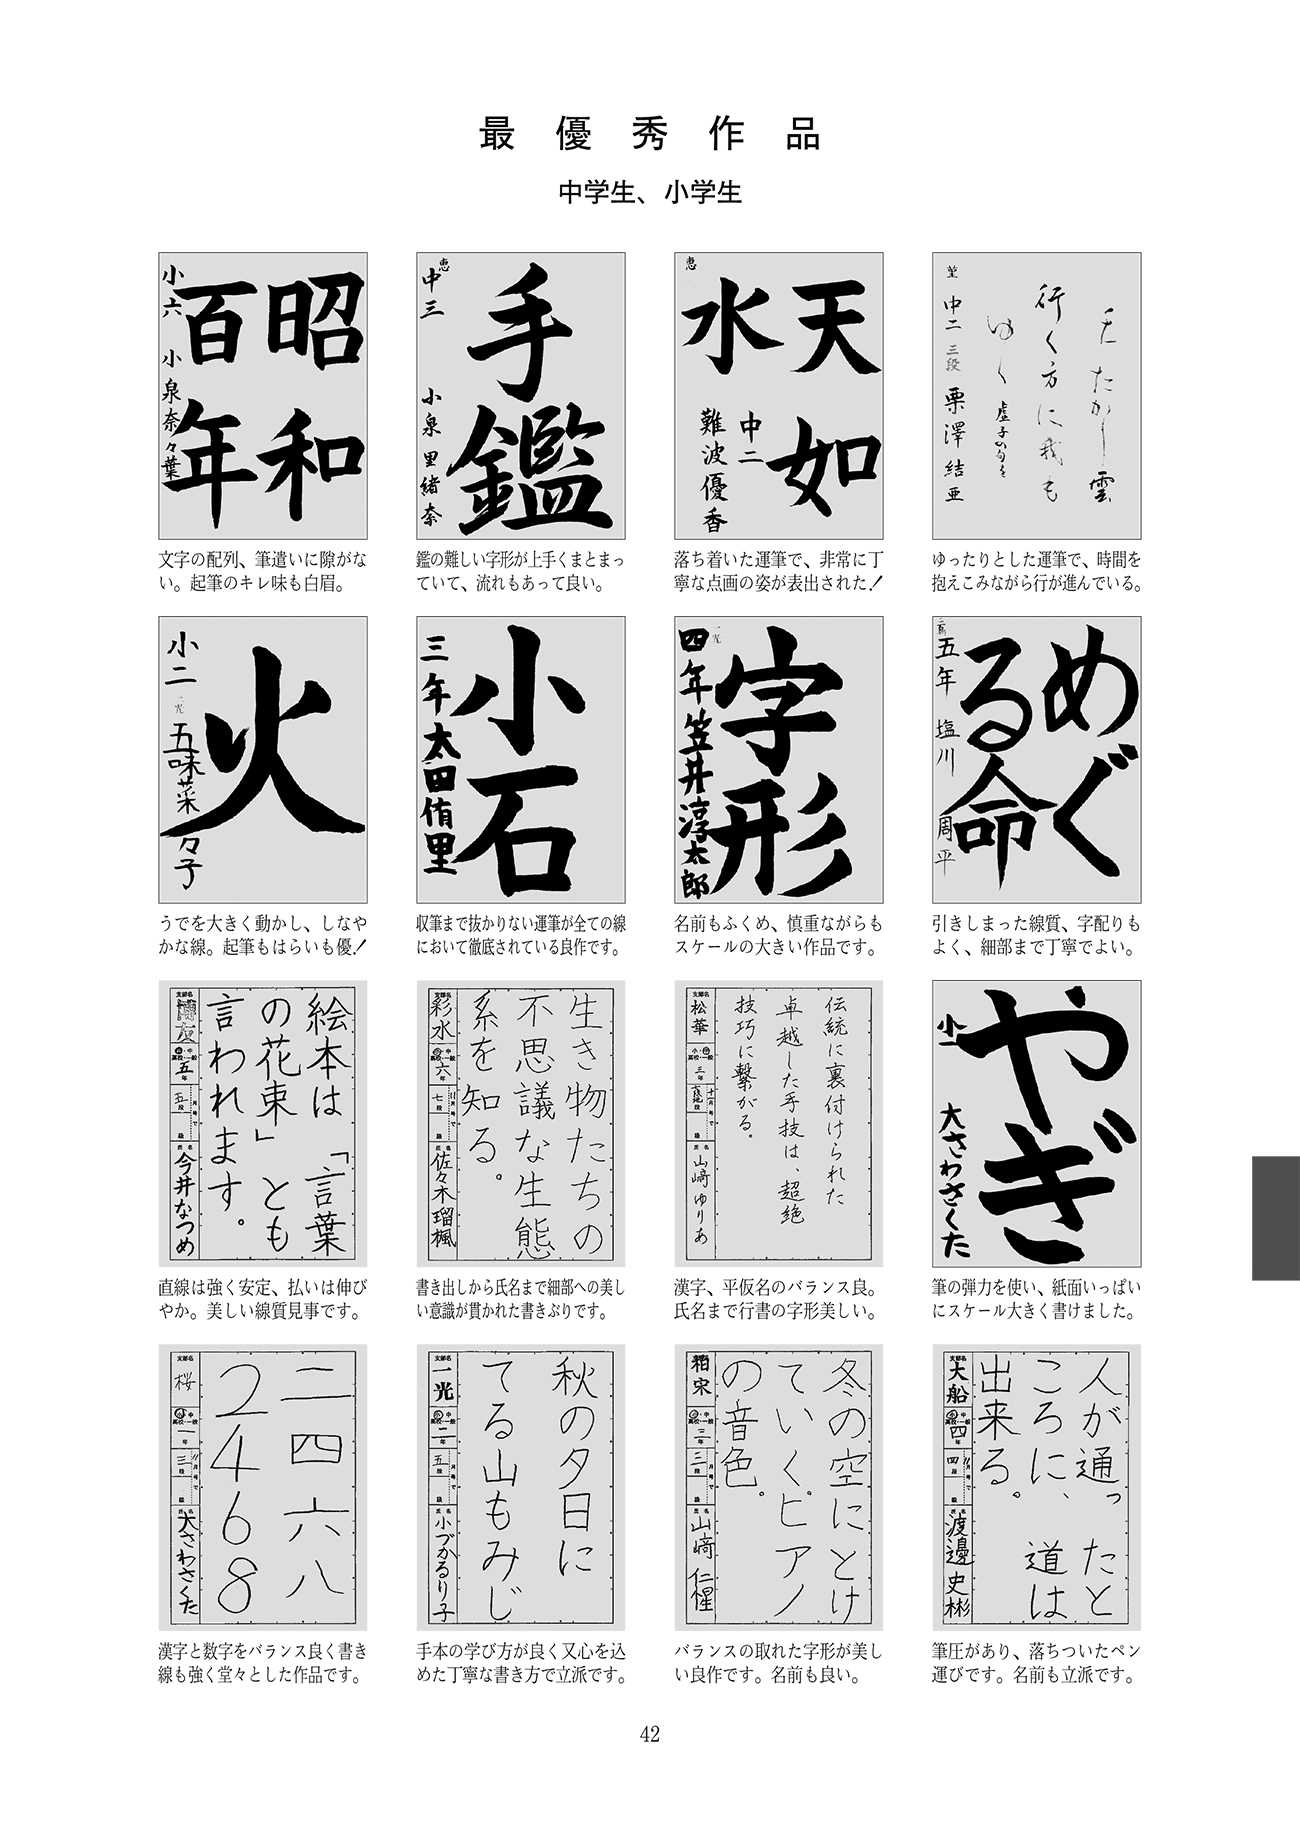 最優秀作品
中学生、小学生
天たかし雲
行く方に我も
ゆく 虚子の句を
中二 三段 栗澤結亜
ゆったりとした運筆で、時間を
抱えこみながら行が進んでいる。
恵
天如
水
中二
難波優香
落ち着いた運筆で、非常に丁
寧な点画の姿が表出された！
恵
手鑑
中三 小泉里緒奈
鑑の難しい字形が上手くまとまっ
ていて、流れもあって良い。
昭和
百年
小六 小泉奈々葉
文字の配列、筆遣いに隙がな
い。起筆のキレ味も白眉。
めぐ
る命
五年 塩川周平
引きしまった線質、字配りも
よく、細部まで丁寧でよい。
一光
字形
四年笠井淳太郎
名前もふくめ、慎重ながらも
スケールの大きい作品です。
小石
三年太田侑里
収筆まで抜かりない運筆が全ての線
において徹底されている良作です。
火
小二 一光 五味菜々子
うでを大きく動かし、しなや
かな線。起筆もはらいも優！
やぎ
小一 大さわさくた
筆の弾力を使い、紙面いっぱい
にスケール大きく書けました。
伝統に裏付けられた
卓越した手技は、超絶
技巧に繋がる。
支部名 松華
小・中 高校・一般 三年
十一月号で 段 級
氏名 山﨑ゆりあ
漢字、平仮名のバランス良。
氏名まで行書の字形美しい。
生き物たちの
不思議な生態
系を知る。
支部名 彩水
小・中 高校・一般 六年
11月号で 七段 級
氏名 佐々木瑠楓
書き出しから氏名まで細部への美し
い意識が貫かれた書きぶりです。
絵本は「言葉
の花束」とも
言われます。
支部名
小・中 高校・一般 五年
月号で 五段 級
氏名 今井なつめ
直線は強く安定、払いは伸び
やか。美しい線質見事です。
人が通ったと
ころに、道は
出来る。
支部名 大船
小・中 高校・一般 四年
11月号で 四段 級
氏名 渡邊史彬
筆圧があり、落ちついたペン
運びです。名前も立派です。
冬の空にとけ
ていく。ピアノ
の音色。
支部名 柏宋
小・中 高校・一般 三年
月号で 三段 級
氏名 山﨑仁惺
バランスの取れた字形が美し
い良作です。名前も良い。
秋の夕日に
てる山もみじ
支部名 一光
小・中 高校・一般 二年
月号で 五段 級
氏名 小づかるり子
手本の学び方が良く又心を込
めた丁寧な書き方で立派です。
二四六八
2468
支部名 桜
小・中 高校・一般 一年
11月号で 三段 級
氏名 大さわさくた
漢字と数字をバランス良く書き
線も強く堂々とした作品です。
42